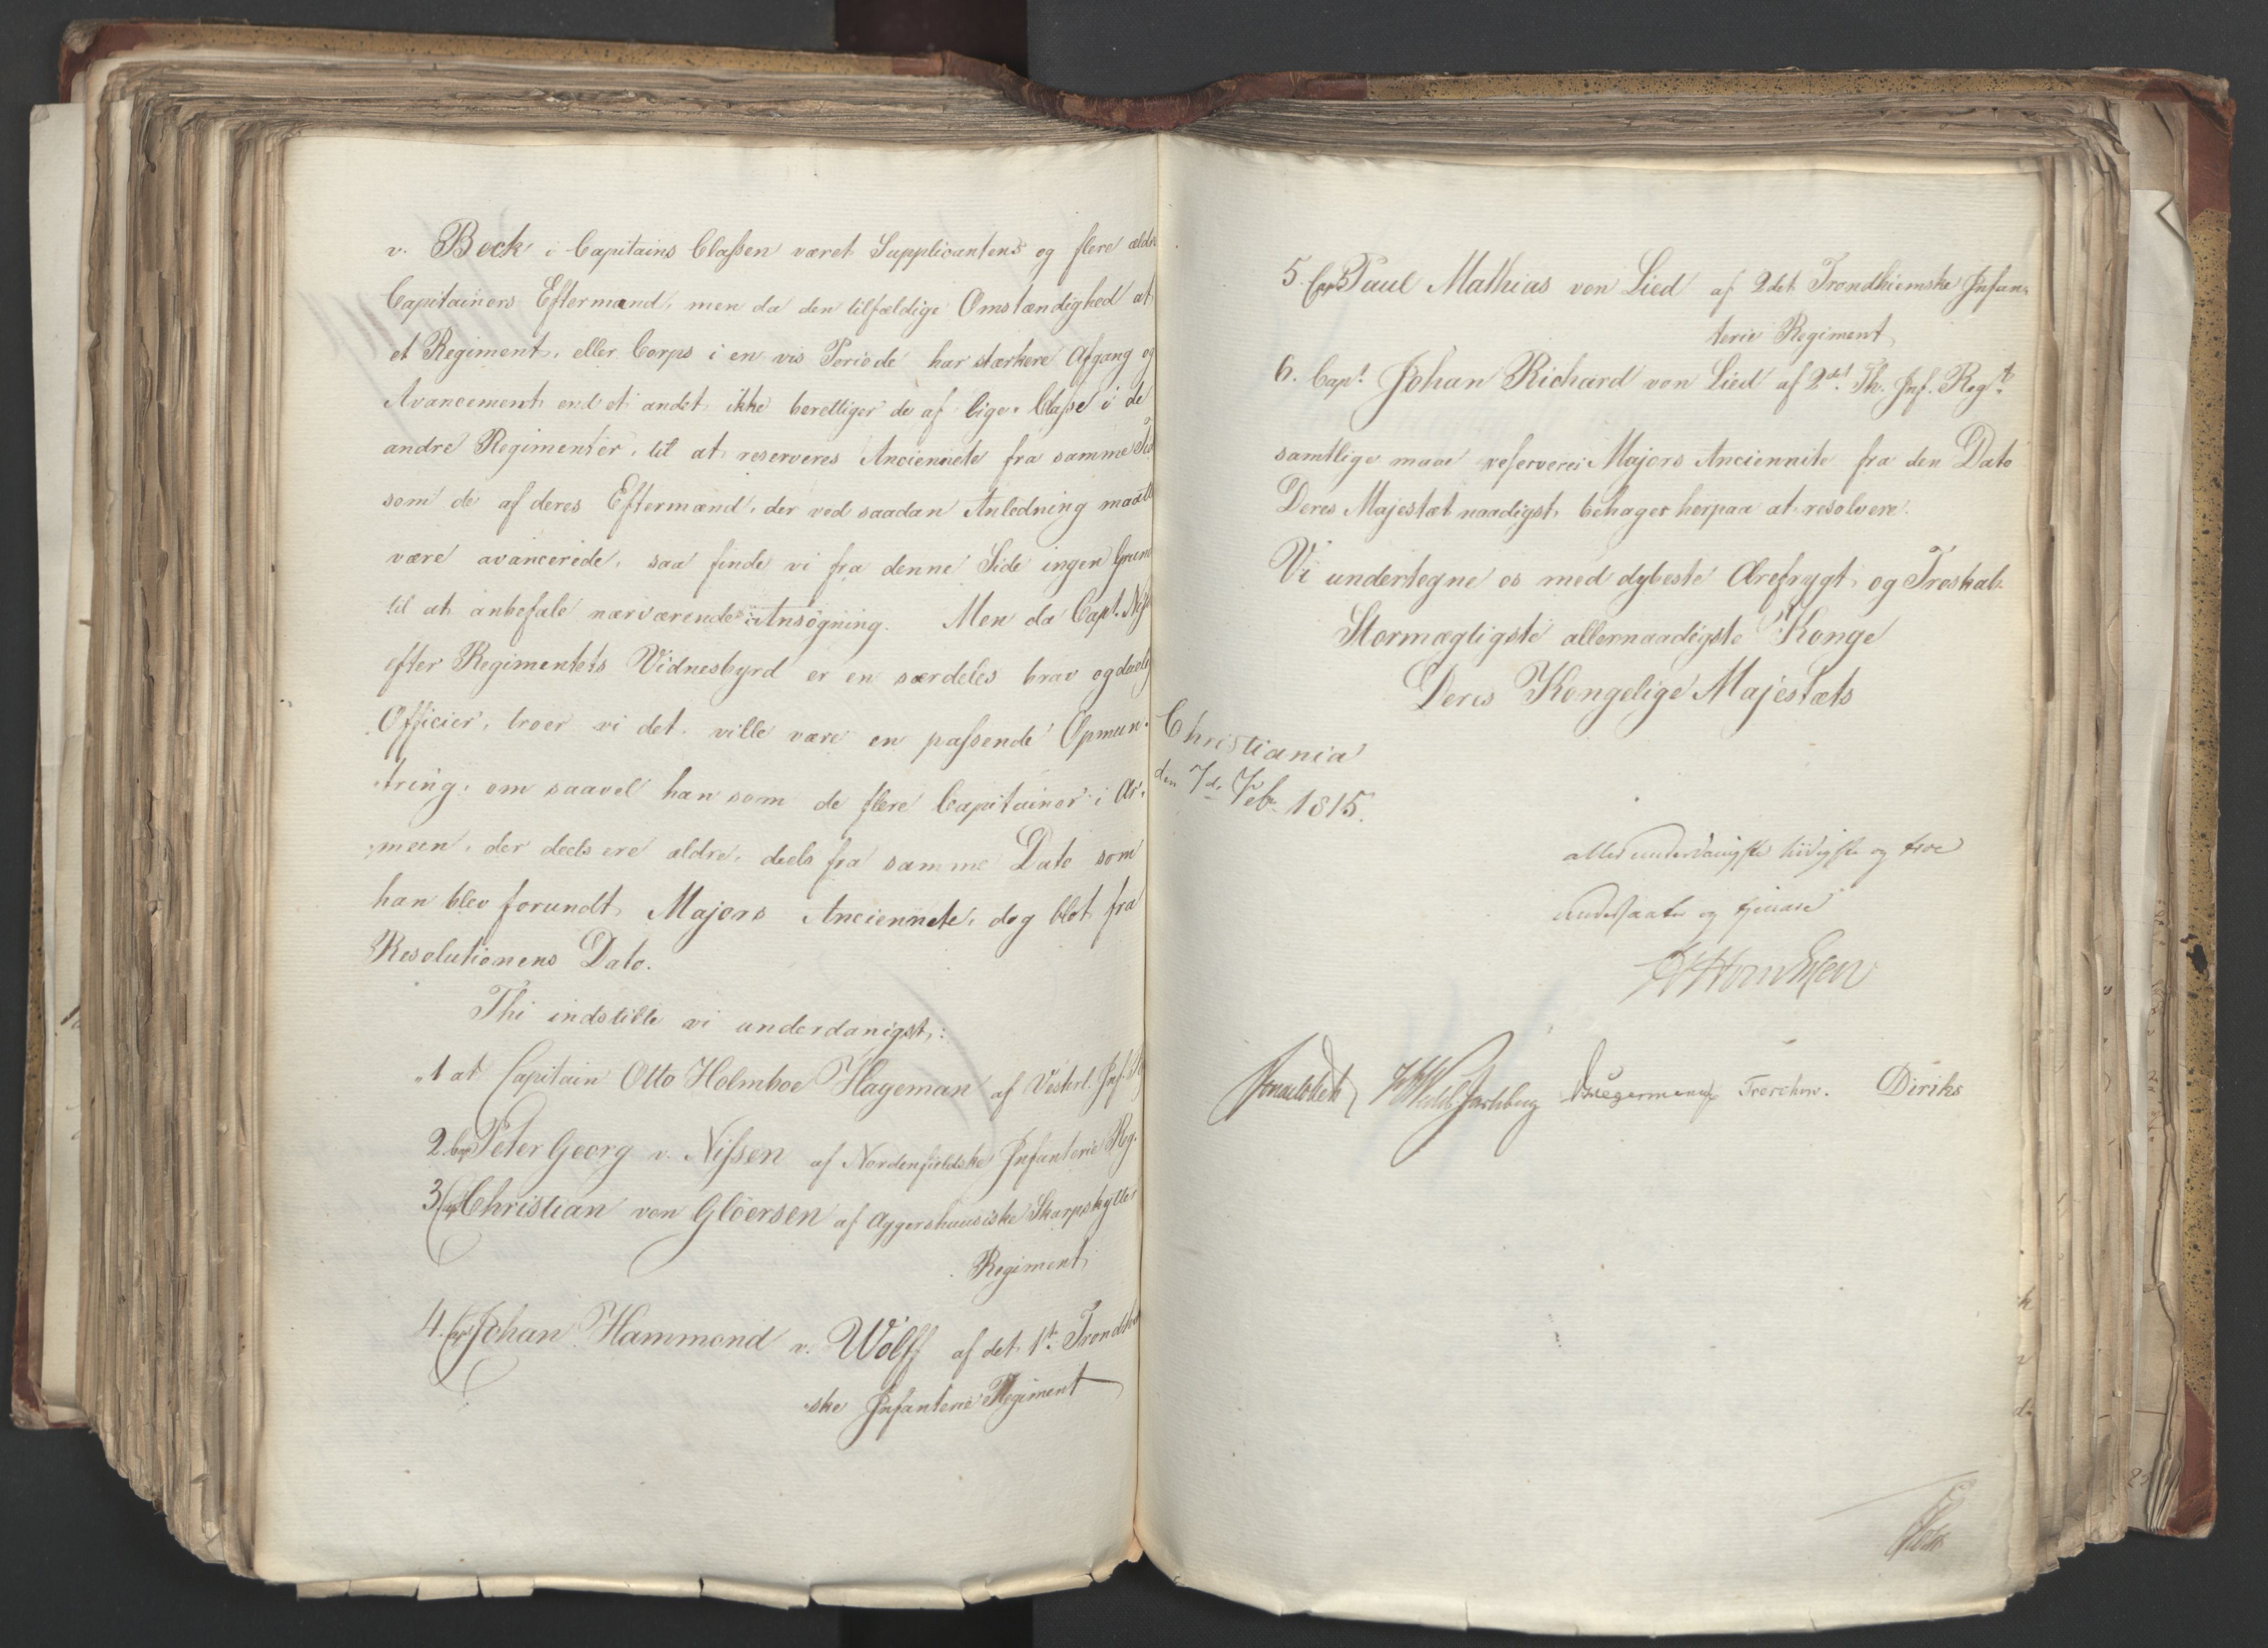 v. Bock i Capitains Classen været Supplicantens og flere ældre
Capitainers Eftermand, men da den tilfældige Omstændighed at
et Regiment, eller Corps i en vis Periode har stærkere Afgang og
Avancement end et andet, ikke berettiger de af lige Classe i de
andre Regimenter, til at reserveres Anciennete fra samme Tid
som de af deres Eftermænd, der ved saadan Anledning maatte
være avancerede, saa finde vi fra denne Side ingen Grund
til at anbefale nærværende Ansøgning. Men da Capt. Niss
efter Regimentets Vidnesbyrd er en særdeles brav og duelig
Officier, troer vi det ville være en passende Opmun-
tring, om saavel han som de flere Capitainer i Ar-
meen, der deels ere ældre, deels fra samme Dato som
han blev forundt Majors Anciennete, dog blot fra
Resolutionens Dato.
Thi indstille vi underdanigst:
1 at Capitain Otto Holmboe Hageman af Vesterl. Inf. R
2. Cap Peter Georg v. Nissen af Nordenfieldske Infanterie Reg.
3 Cap Christian von Gløersen af Aggershuusiske Skarpskytter
Regiment
4. Cap Johan Hammond v. Wolff af det 1t. Trondh
ske Infanterie Regiment
5. Cap Paul Mathias von Lied af 2det Trondhiemske Infan-
terie Regiment
6. Capt. Johan Richard von Lied af 2det Th. Inf. Regt.
samtlige maae reserveres Majors Anciennite fra den Dato
Deres Majestæt naadigst behager herpaa at resolvere.
Vi undertegne os med dybeste Ærefrygt og Troskab.
Stormægtigste allernaadigste Konge
Deres Kongelige Majestæts
Christiania
den 7de Feb. 1815.
allerunderdanigste lydigste og troe
undersaatter og tjenere
Wedel Jarlsberg Krieger Treschow. Diriks